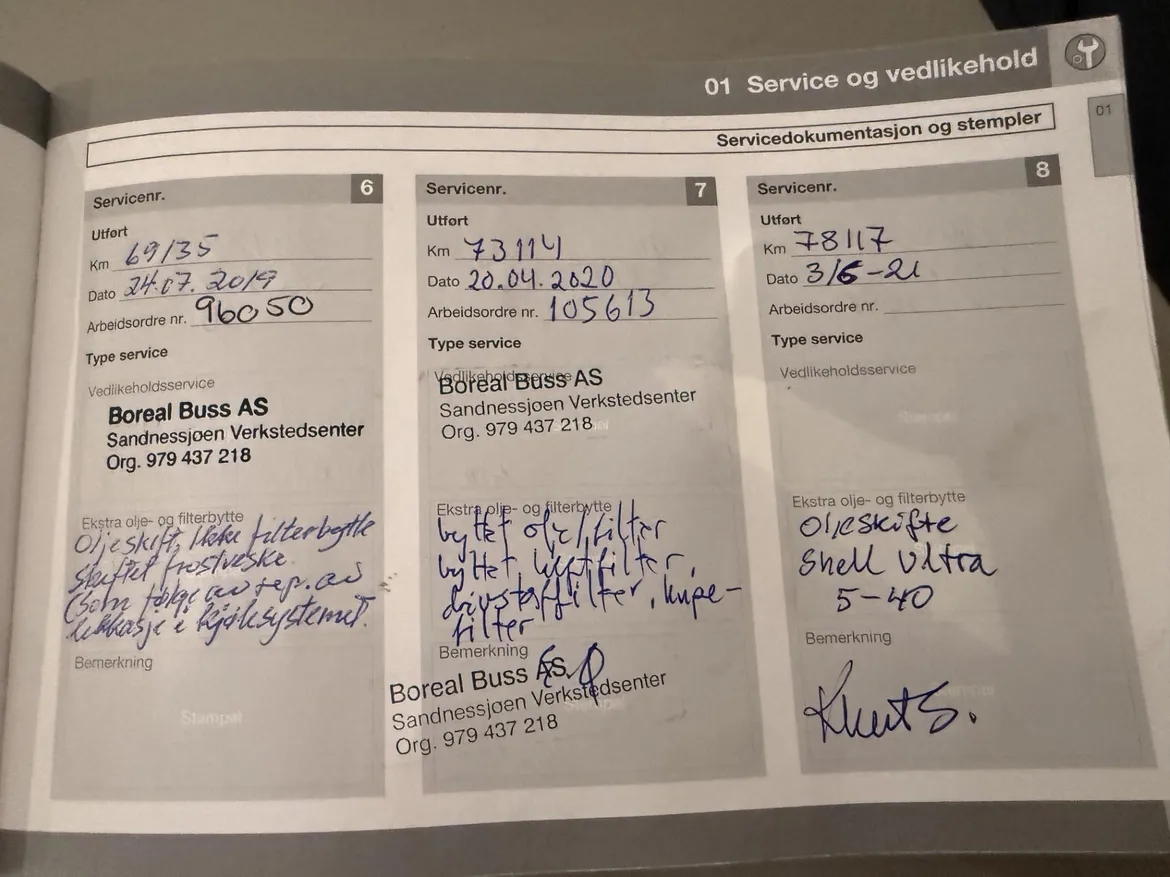 01 Service og vedlikehold
01
Servicedokumentasjon og stempler
Servicenr. 6
Utført
Km 69135
Dato 24.07. 2019
Arbeidsordre nr. 96050
Type service
Vedlikeholdsservice
Boreal Buss AS
Sandnessjøen Verkstedsenter
Org. 979 437 218
Ekstra olje- og filterbytte
Oljeskift, Ikke filterbytte
skiftet frostveske
(som følge av rep. av
lekkasje i kjølesystemet.
Bemerkning
Stempel
Servicenr. 7
Utført
Km 73114
Dato 20.04.2020
Arbeidsordre nr. 105613
Type service
Vedlikeholdsservice
Boreal Buss AS
Sandnessjøen Verkstedsenter
Org. 979 437 218
Ekstra olje- og filterbytte
byttet olje/filter
byttet, luftfilter,
drivstoffilter, kupe-
filter
Bemerkning
Boreal Buss AS
Sandnessjøen Verkstedsenter
Org. 979 437 218
Servicenr. 8
Utført
Km 78117
Dato 3/6-21
Arbeidsordre nr.
Type service
Vedlikeholdsservice
Stempel
Ekstra olje- og filterbytte
Oljeskifte
Shell Ultra
5-40
Bemerkning
Knut S.